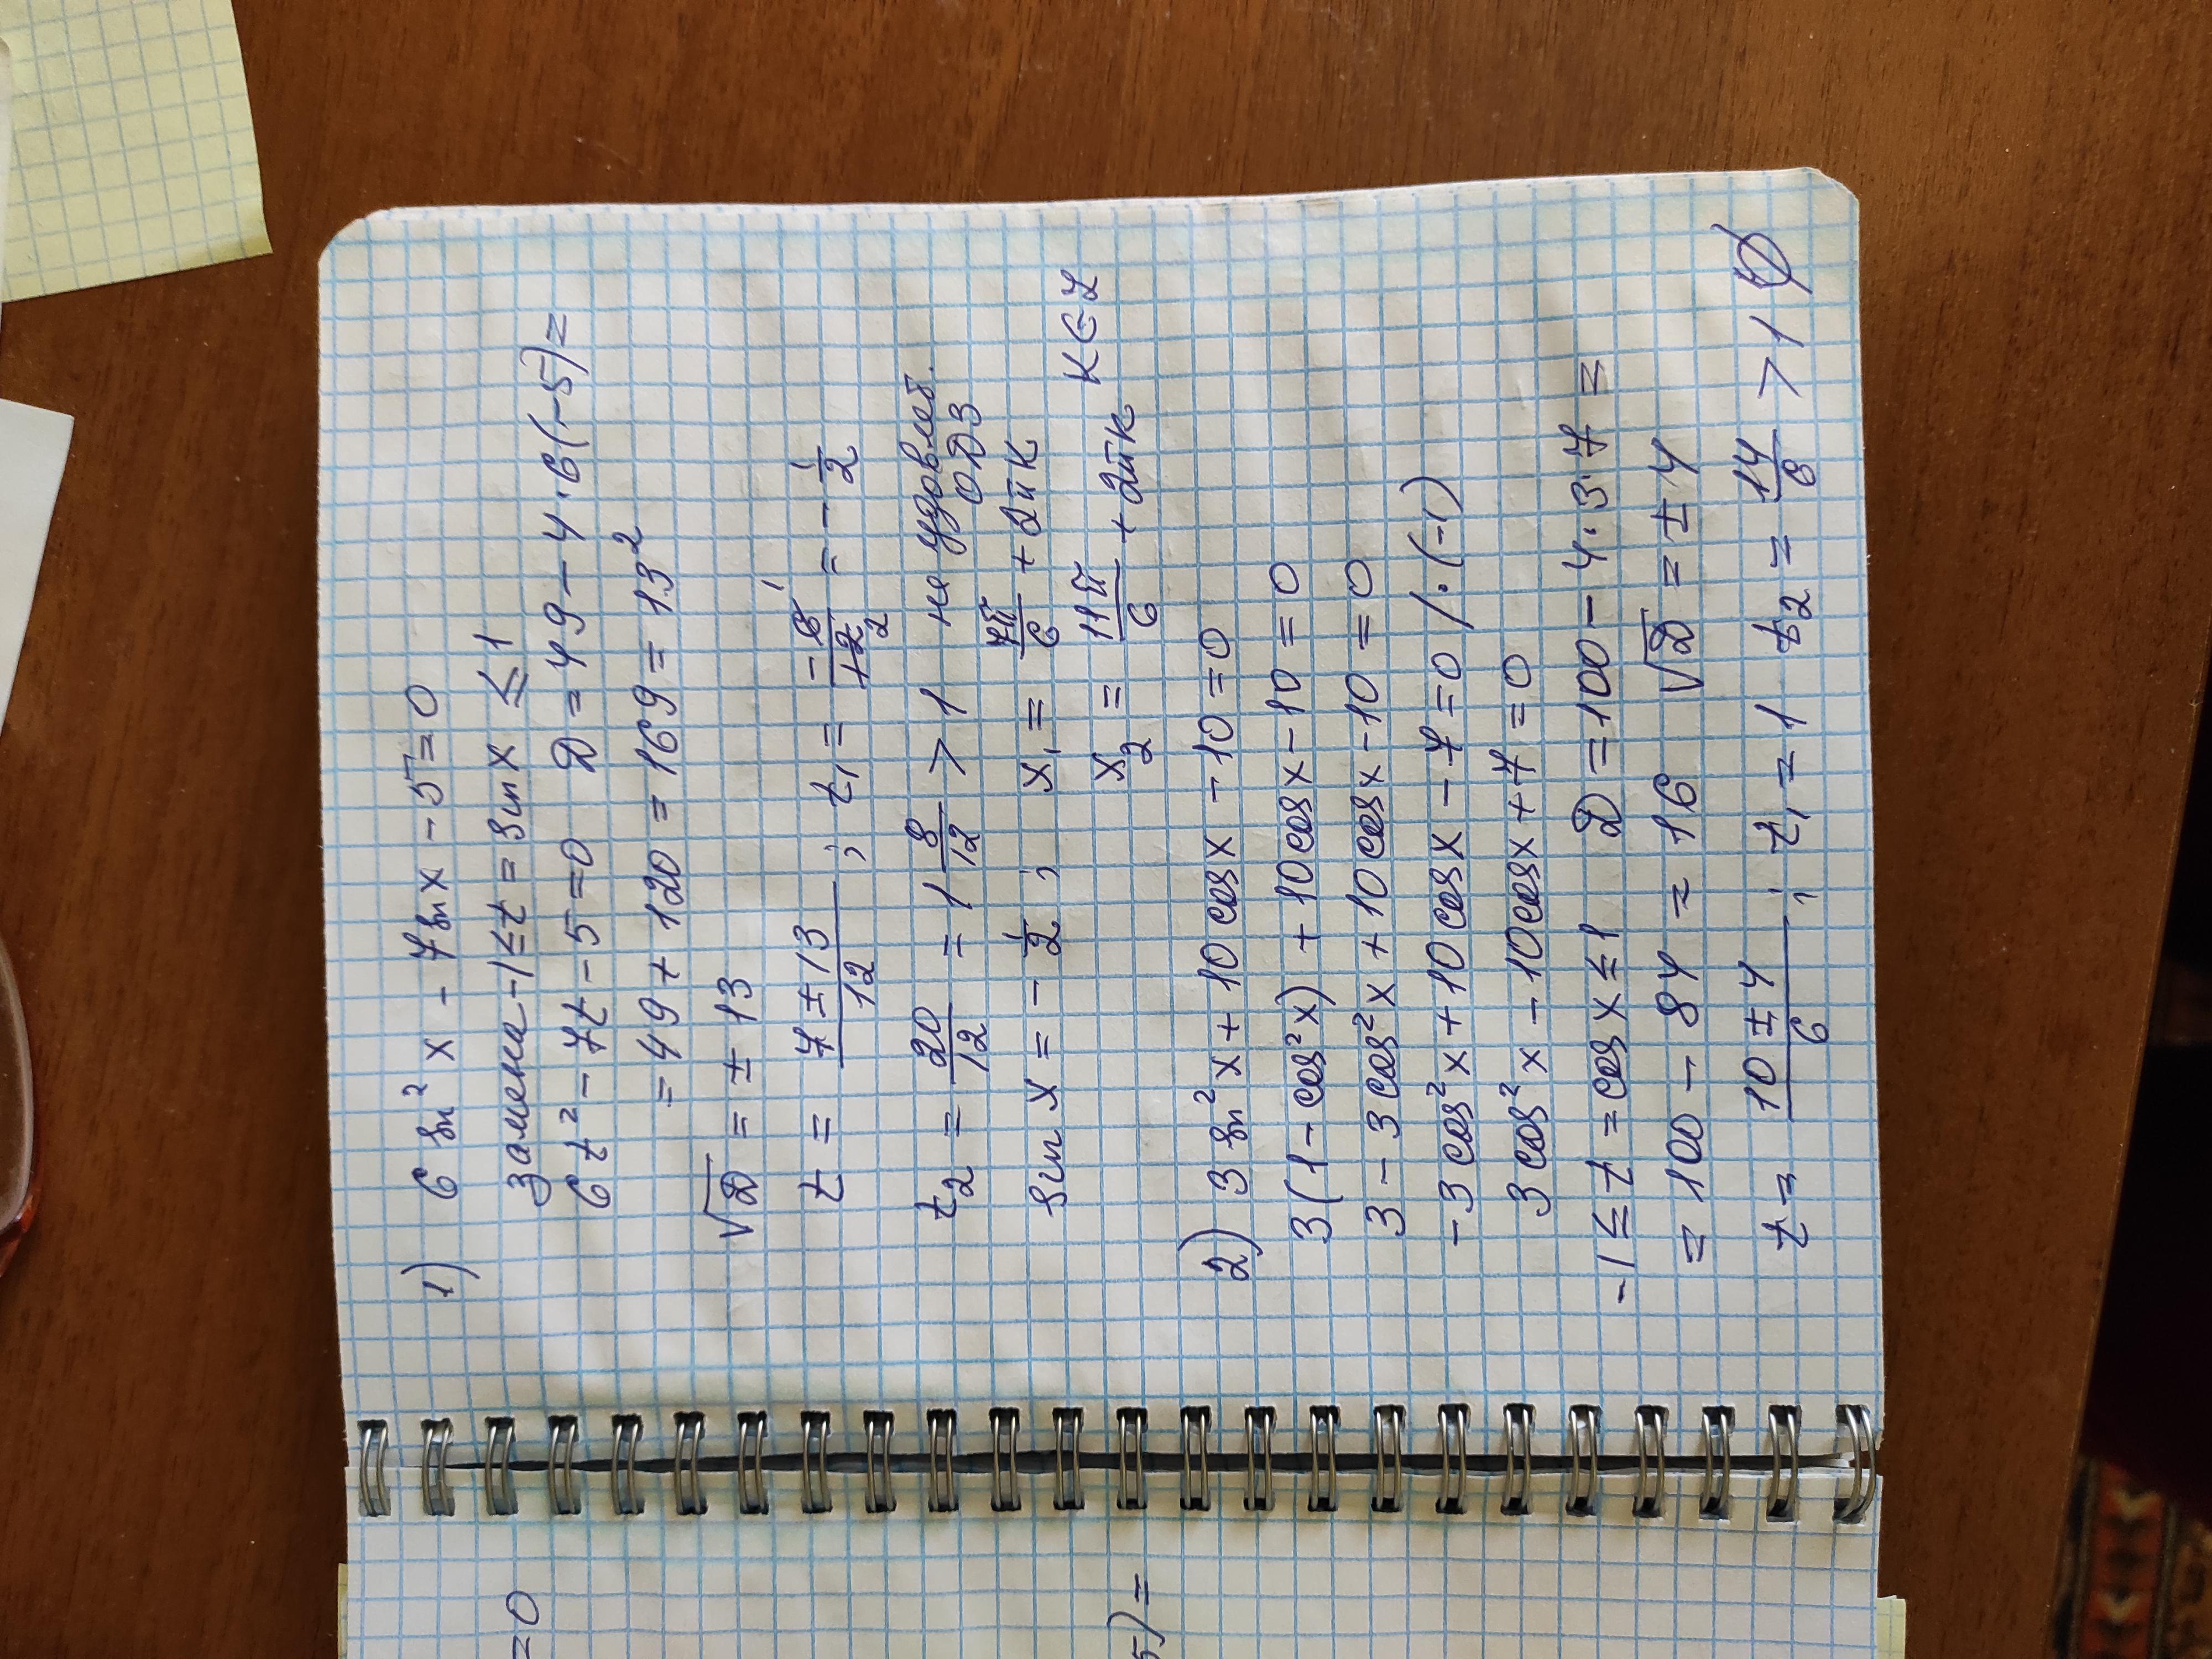 1) 6 sin² x - 7 sin x - 5 = 0
замена -1 ≤ t = sin x ≤ 1
6t² - 7t - 5 = 0 D = 49 - 4·6(-5) =
= 49 + 120 = 169 = 13²
√D = ± 13
t = (7 ± 13)/12 ; t₁ = -6/12 = -1/2
t₂ = 20/12 = 1 8/12 > 1 не удовлет. ОДЗ
sin x = -1/2 ; x₁ = 7π/6 + 2πк
x₂ = 11π/6 + 2πк к∈Z
2) 3 sin² x + 10 cos x - 10 = 0
3(1 - cos² x) + 10 cos x - 10 = 0
3 - 3 cos² x + 10 cos x - 10 = 0
-3 cos² x + 10 cos x - 7 = 0 /·(-1)
3 cos² x - 10 cos x + 7 = 0
-1 ≤ t = cos x ≤ 1 D = 100 - 4·3·7 =
= 100 - 84 = 16 √D = ± 4
t = (10 ± 4)/6 ; t₁ = 1 t₂ = 14/6 > 1 ∅
=0
5) =